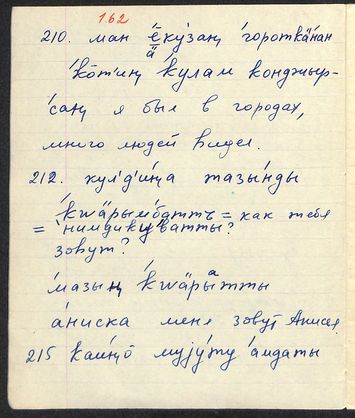 162
210. ман ёку́заӊ 'городкӓнан
'ко̄т'иӊ 'кулам конджыр-
'саӊ я был в городах,
много людей видел.
212. кул'д'и́ӊа тазы́нды
'кwӓрым̄бдттъ = как тебя
= 'нимдикуватты?
зовут?
'мазыӊ 'кwӓрытты
а́ниска меня зовут Аниска
215 каи́ӊо̄ мују́ту 'амдаты